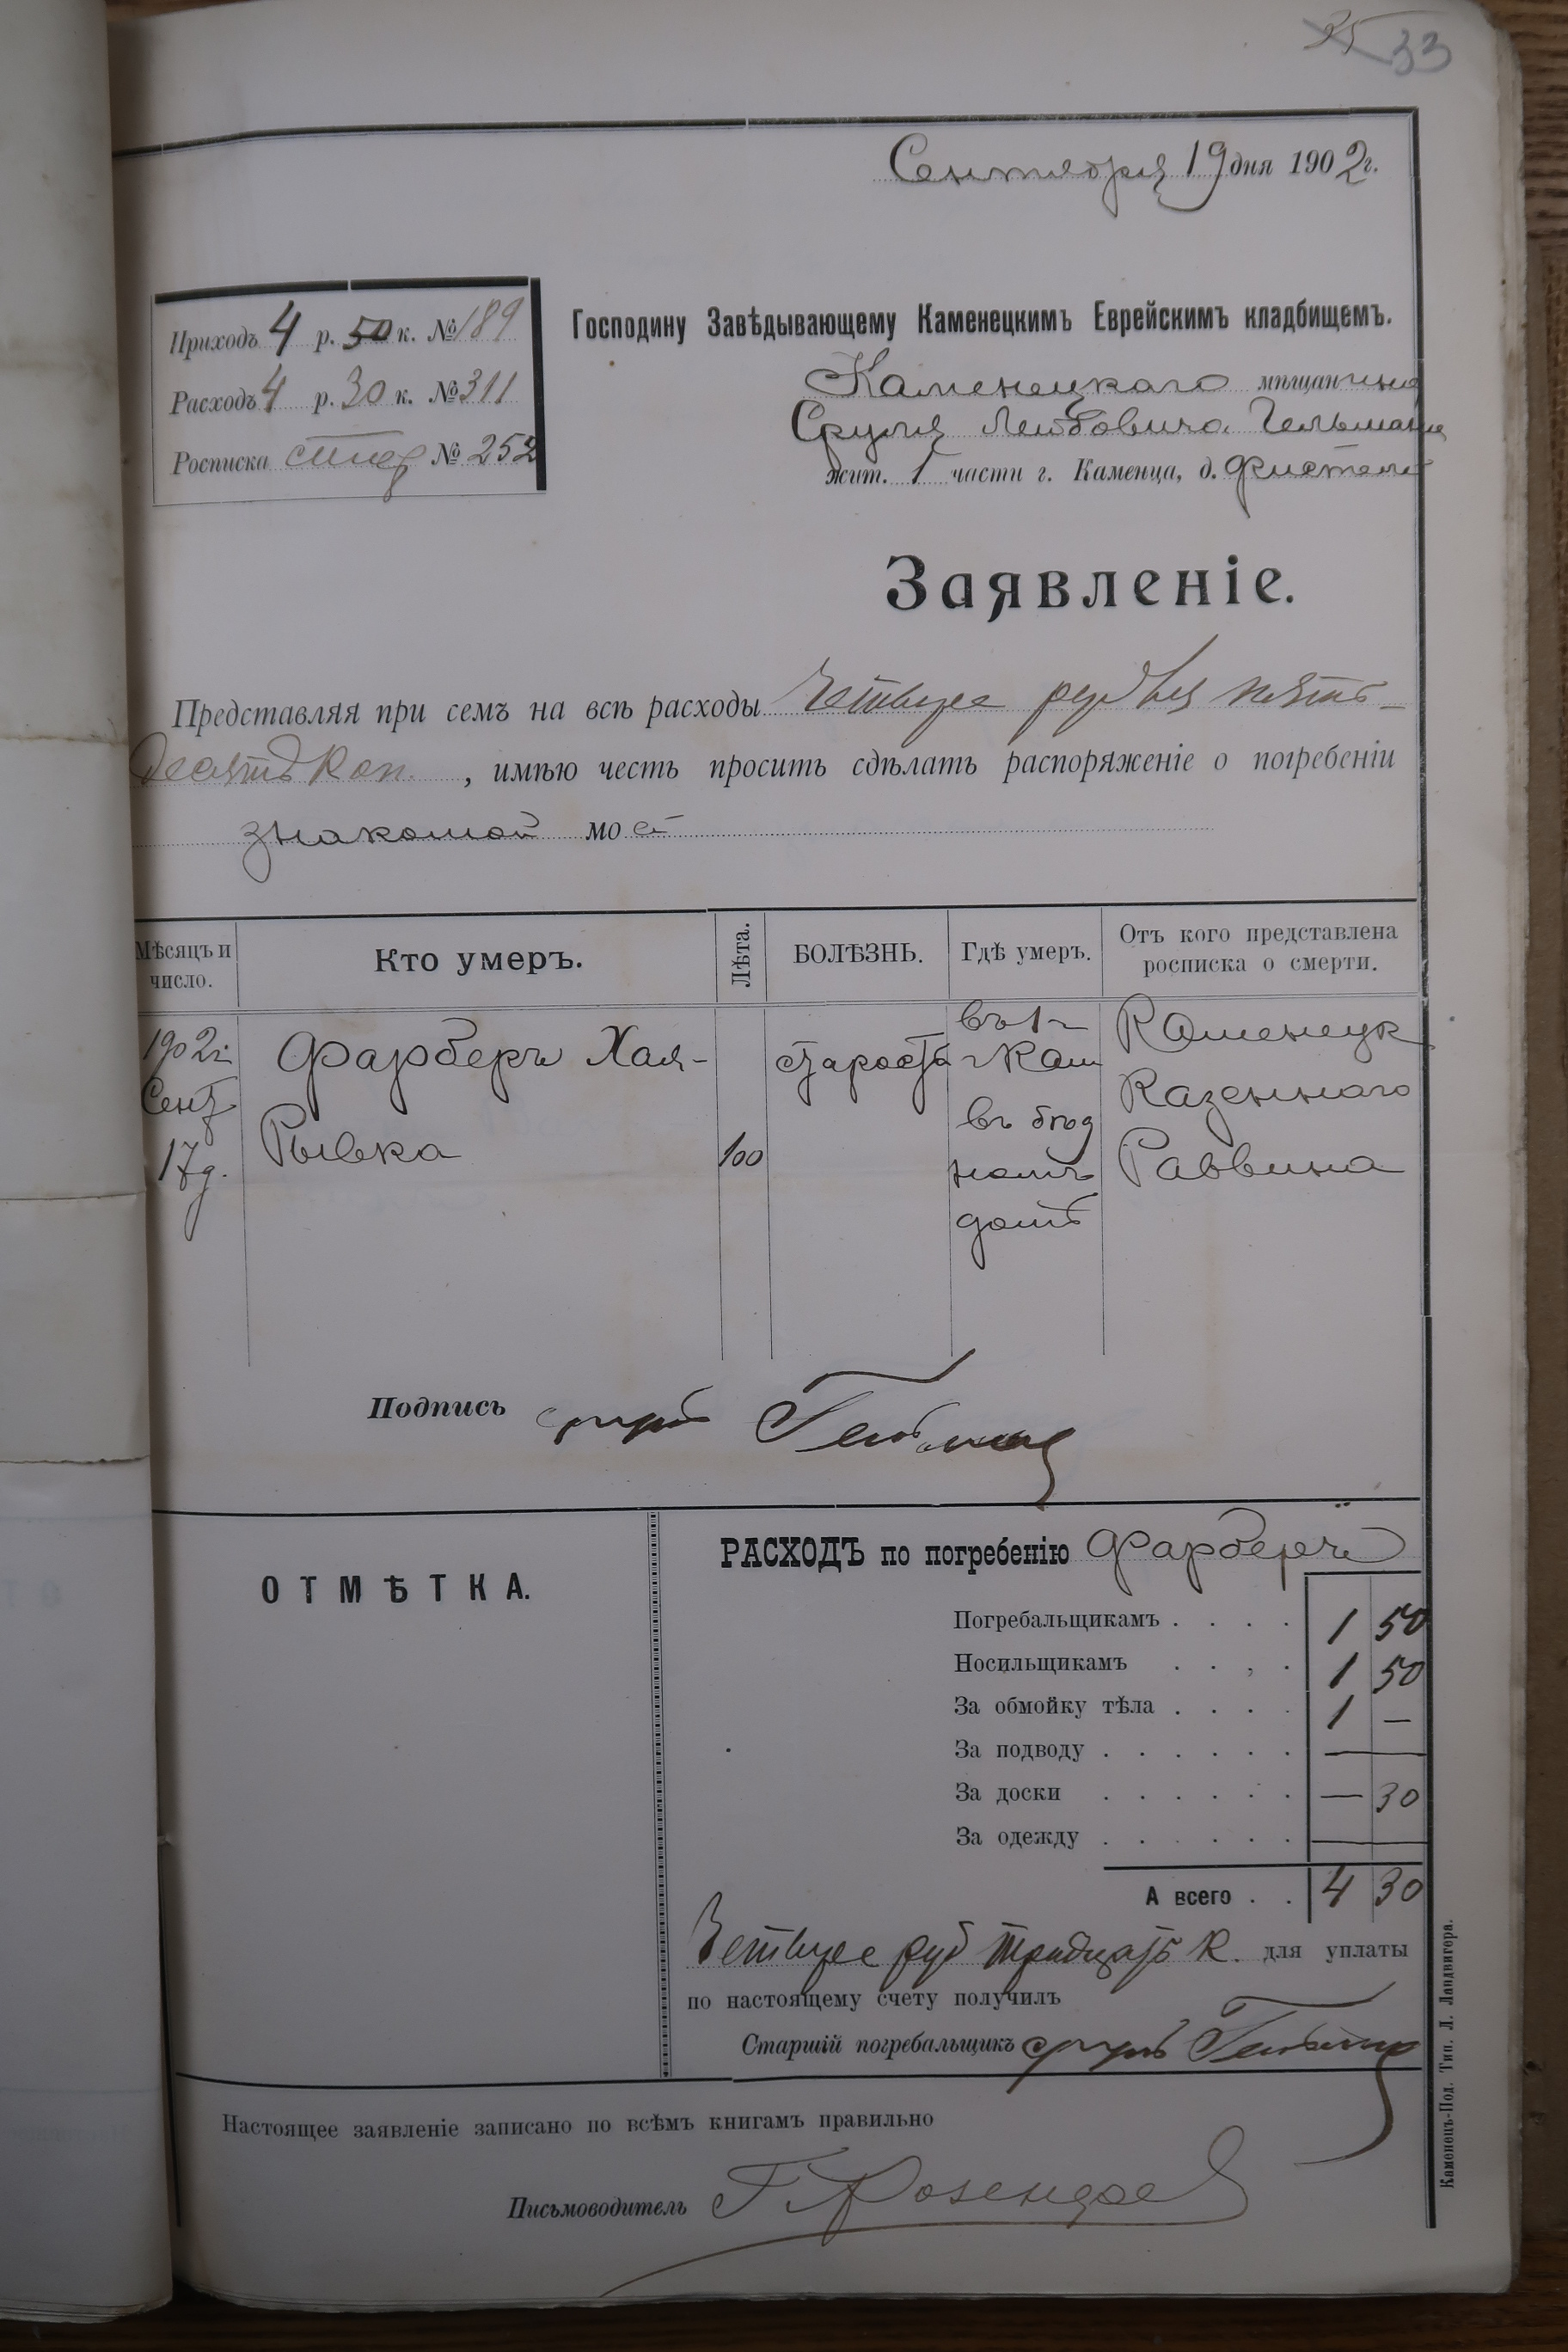 33
Сентября 19 дня 1902 г.
Приходъ 4 р. 50 к. № 189
Расходъ 4 р. 30 к. № 311
Росписка № 252
Господину Завѣдывающему Каменецкимъ Еврейскимъ кладбищемъ.
Каменецкаго мѣщанина
Сруля Лейбовича Гельмана
жит. 1 части г. Каменца, д.
Заявленіе.
Представляя при семъ на всѣ расходы Четыре рубля пять-
десятъ коп. , имѣю честь просить сдѣлать распоряженіе о погребеніи
знакомой моей
Мѣсяцъ и число. Кто умеръ. Лѣта. БОЛѢЗНЬ. Гдѣ умеръ. Отъ кого представлена росписка о смерти.
1902 г. Фарберъ Хая- старость въ 1 ч. Каменецк
Сент г. Кам Казеннаго
17 д. Рывка 100 въ Раввина
домѣ
Подпись
ОТМѢТКА.
РАСХОДЪ по погребенію Фарберъ
Погребальщикамъ . . . . 1 50
Носильщикамъ . . , . 1 50
За обмойку тѣла . . . . 1 —
За подводу . . . . . . —
За доски . . . . . . — 30
За одежду . . . . . . —
А всего . . 4 30
Четыре руб тридцать к. для уплаты
по настоящему счету получилъ
Старшій погребальщикъ
Настоящее заявленіе записано по всѣмъ книгамъ правильно
Письмоводитель
Каменецъ-Под. Тип. Л. Ландвигера.